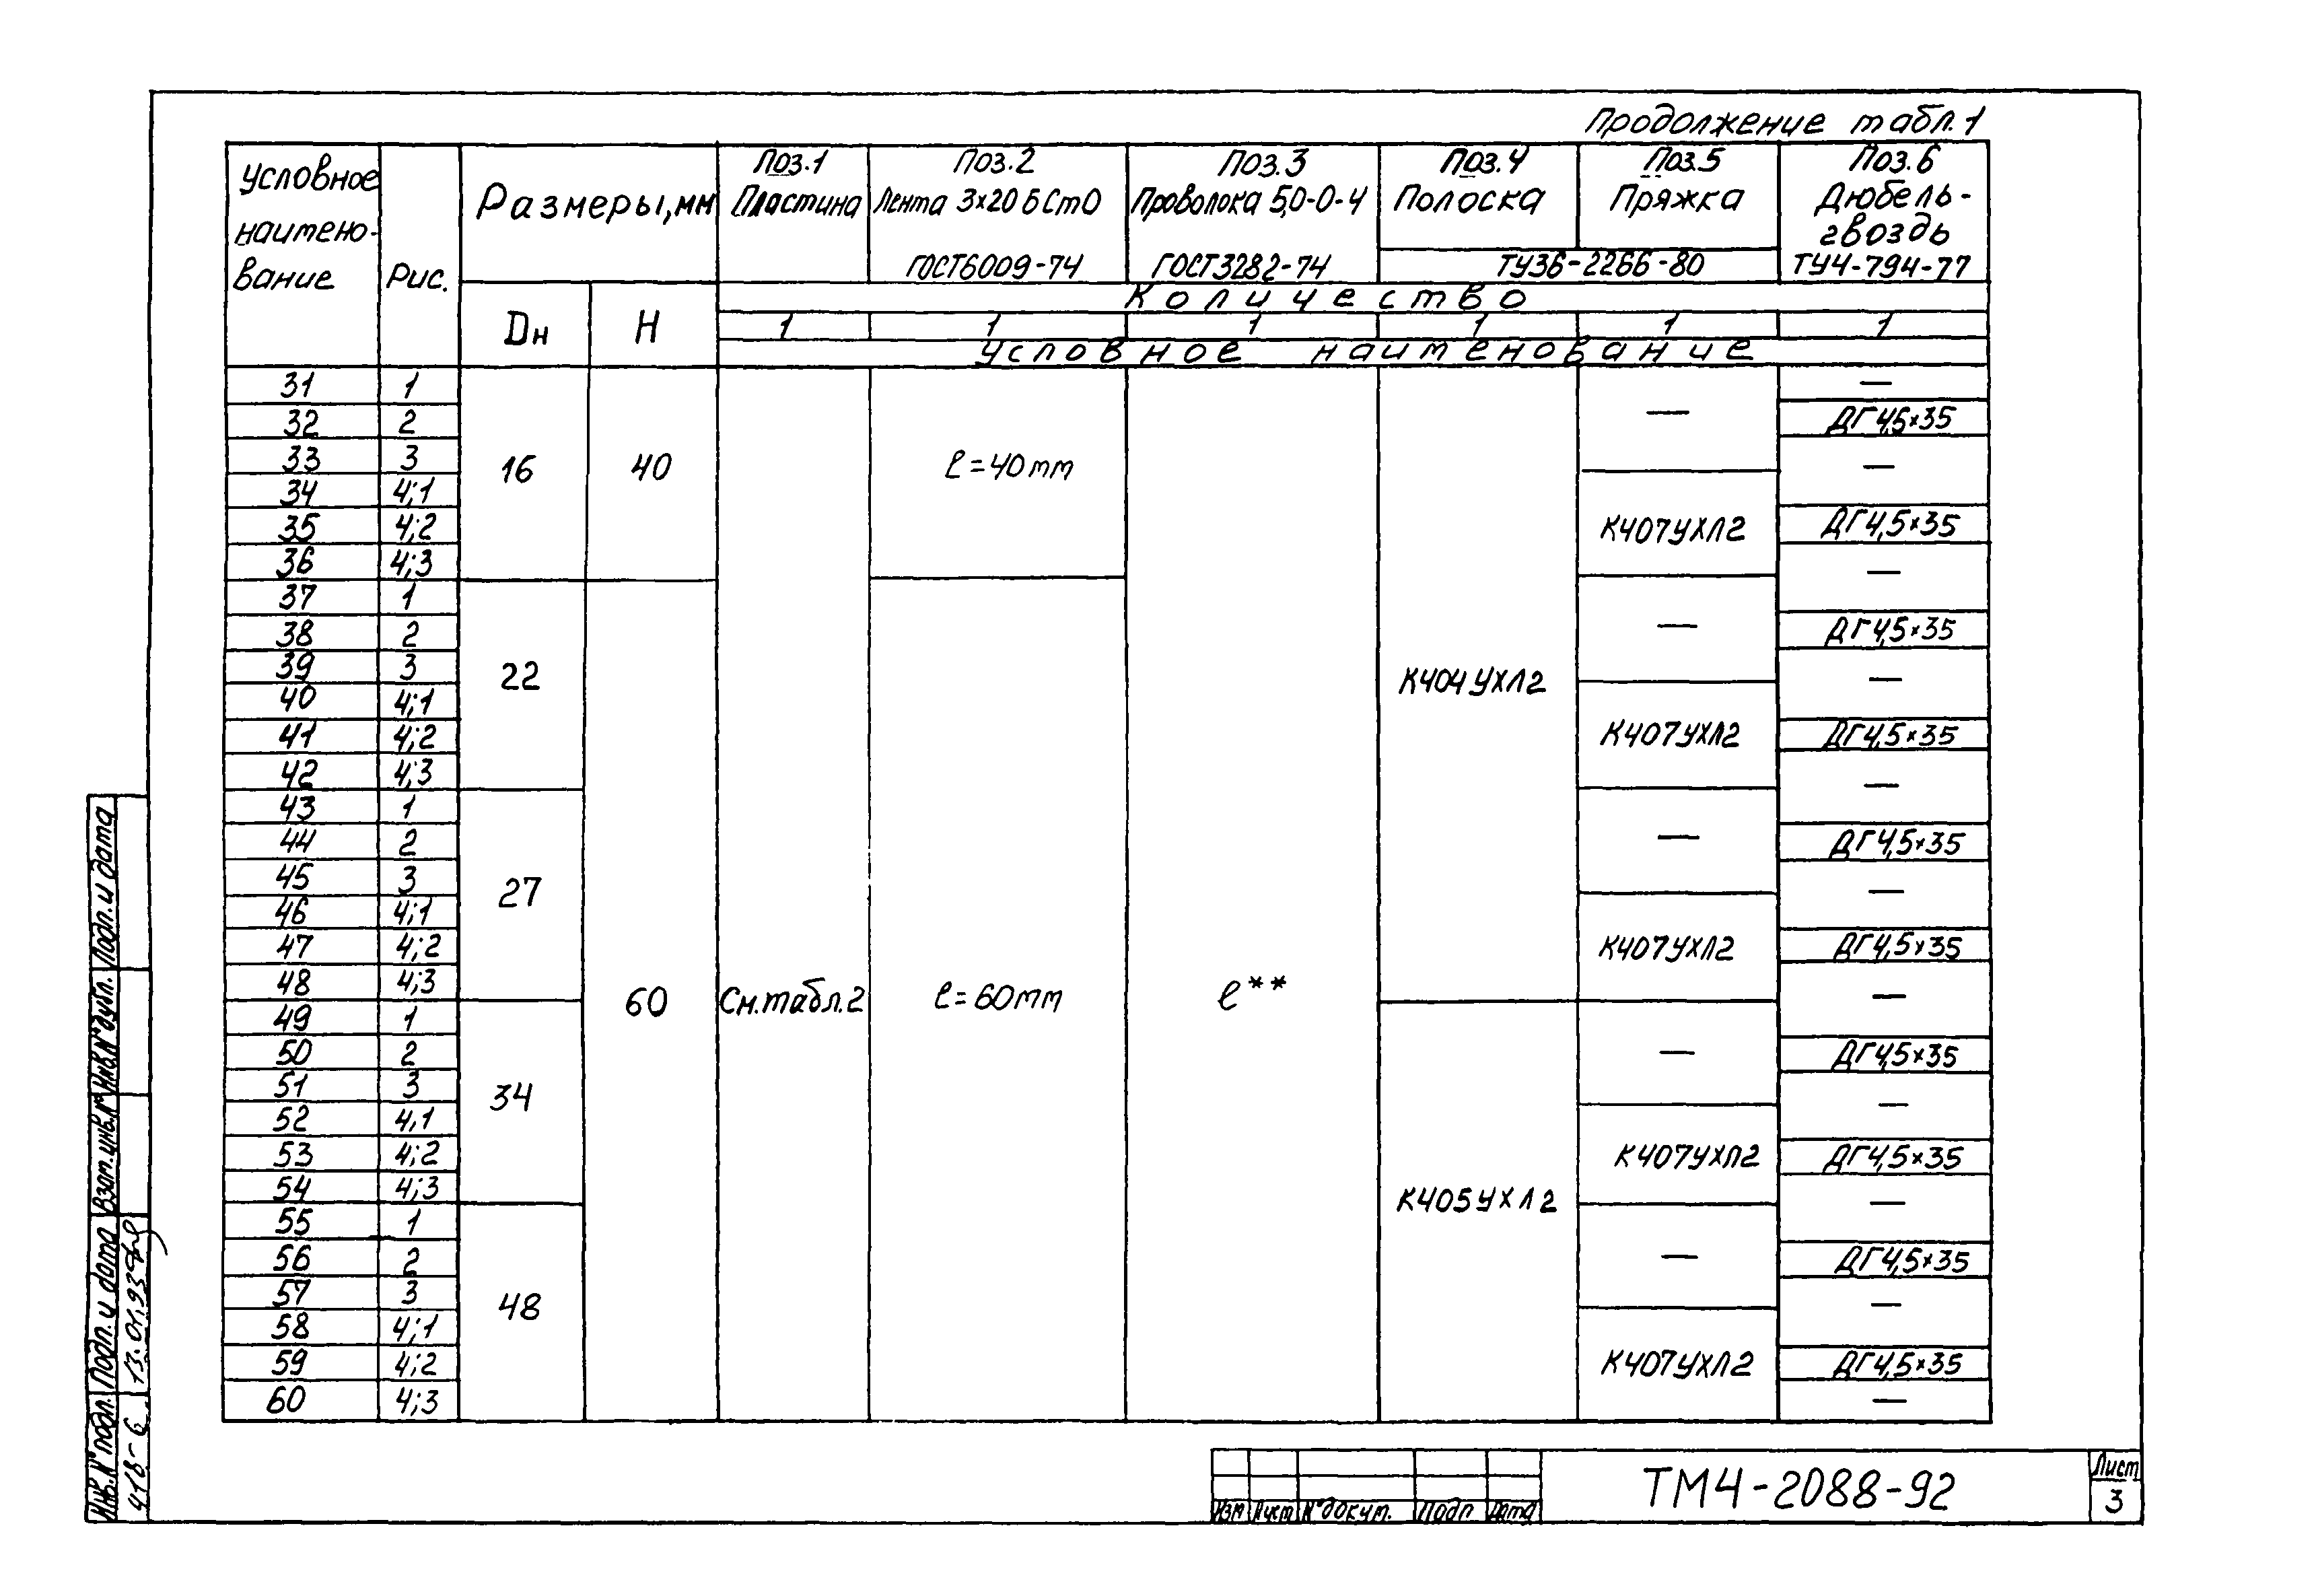 Продолжение табл.1
Условное наимено-вание
Рис.
Размеры, мм
Поз.1 Пластина
Поз.2 Лента 3×20 БСт0 ГОСТ6009-74
Поз.3 Проволока 5,0-0-Ч ГОСТ3282-74
Поз.4 Полоска
Поз.5 Пряжка
ТУ36-2266-80
Поз.6 Дюбель-гвоздь ТУ4-794-77
Dн
H
Количество
1 1 1 1 1 1
Условное наименование
31 1 16 40 См.табл.2 ℓ=40мм ℓ** К404УХЛ2 — —
32 2 ДГ4,5×35
33 3 —
34 4;1 К407УХЛ2
35 4;2 ДГ4,5×35
36 4;3 —
37 1 22 60 ℓ=60мм —
38 2 ДГ4,5×35
39 3 —
40 4;1 К407УХЛ2
41 4;2 ДГ4,5×35
42 4;3 —
43 1 27 —
44 2 ДГ4,5×35
45 3 —
46 4;1 К407УХЛ2
47 4;2 ДГ4,5×35
48 4;3 —
49 1 34 К405УХЛ2 —
50 2 ДГ4,5×35
51 3 —
52 4,1 К407УХЛ2
53 4;2 ДГ4,5×35
54 4;3 —
55 1 48 —
56 2 ДГ4,5×35
57 3 —
58 4;1 К407УХЛ2
59 4;2 ДГ4,5×35
60 4;3 —
Подп. и дата
Инв.№ дубл.
Взам.инв.№
Подп. и дата
13.01.93
Инв.№ подл.
418-6
Изм Лист № докум. Подп Дата
ТМ4-2088-92
Лист
3